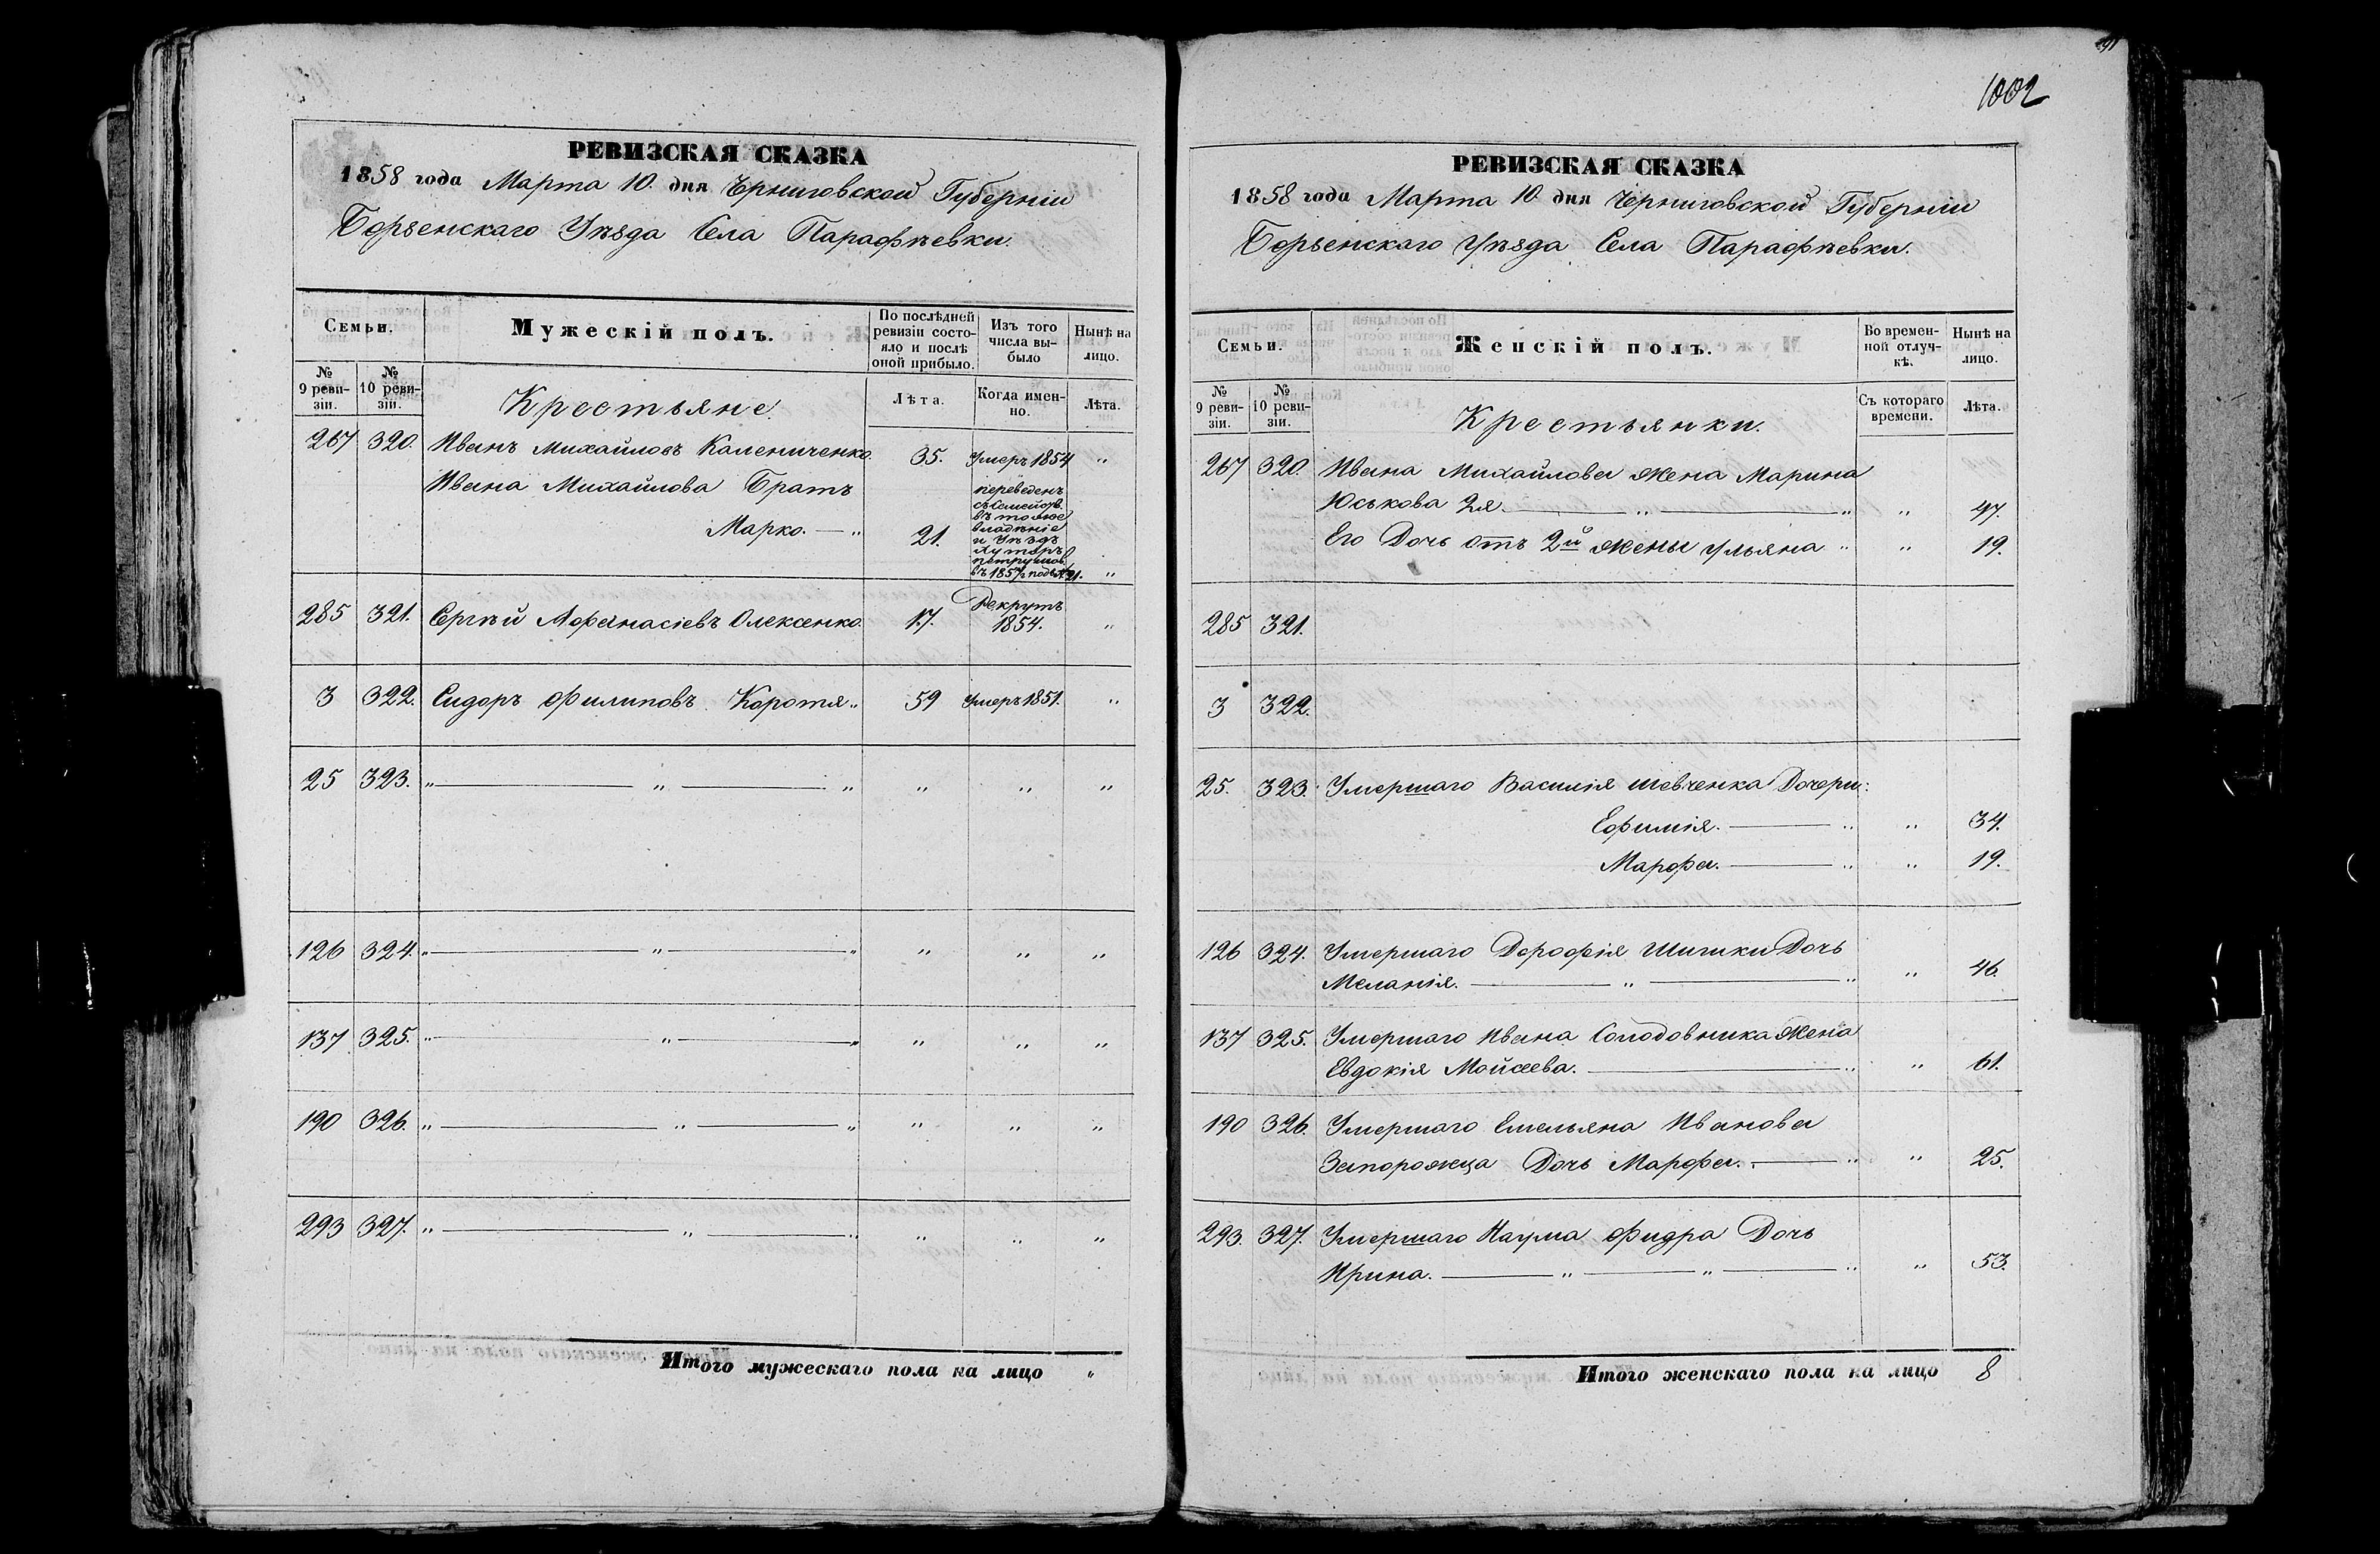 РЕВИЗСКАЯ СКАЗКА
1858 года Марта 10. дня Черниговской Губерніи
Борзенскаго Уѣзда Села Парафѣевки.
Семьи.
Мужескій полъ.
По послѣдней ревизіи состояло и послѣ оной прибыло.
Изъ того числа выбыло
Нынѣ на лицо.
№ 9 ревизіи.
№ 10 ревизіи.
Крестьяне
Лѣта.
Когда именно.
Лѣта.
267 320. Иванъ Михайловъ Калениченко. 35. Умеръ 1854 "
Ивана Михайлова Братъ
Марко. — " 21.
переведенъ
съ семейств.
въ тоже
владѣніе
и Уѣздъ
Хуторъ
въ 1857г. подъ № 21. "
285 321. Сергѣй Афанасіевъ Олексенко. 17. Рекрутъ
1854. "
3 322. Сидоръ Филиповъ Коротя " 59 Умеръ 1851. "
25 323. " — " — " " " "
126 324. " — " — " " " "
137 325. " — " — " " " "
190 326. " — " — " " " "
293 327. " — " — " " " "
Итого мужескаго пола на лицо "
1002
РЕВИЗСКАЯ СКАЗКА
1858 года Марта 10 дня Черниговской Губерніи
Борзенскаго Уѣзда Села Парафѣевки.
Семьи.
Женскій полъ.
Во временной отлучкѣ.
Нынѣ на лицо.
№ 9 ревизіи.
№ 10 ревизіи.
Крестьянки.
Съ котораго времени.
Лѣта.
267 320. Ивана Михайлова жена Марина
Юськова 2я. — " — " " 47.
Его Дочь отъ 2й жены Ульяна " " 19.
285 321.
3 322.
25. 323. Умершаго Василія Шевченка Дочери:
Ефимія. — " " 34.
Марфа. — " " 19.
126 324. Умершаго Дорофія Шишки Дочь
Меланія. — " — " " 46.
137 325. Умершаго Ивана Солодовника Жена
Евдокія Мойсеева. — " " 61.
190 326. Умершаго Емельяна Иванова
Запорожца Дочь Марфа. — " " 25.
293. 327. Умершаго Наума Фидра Дочь
Ирина. — " — " — " " 53.
Итого женскаго пола на лицо 8